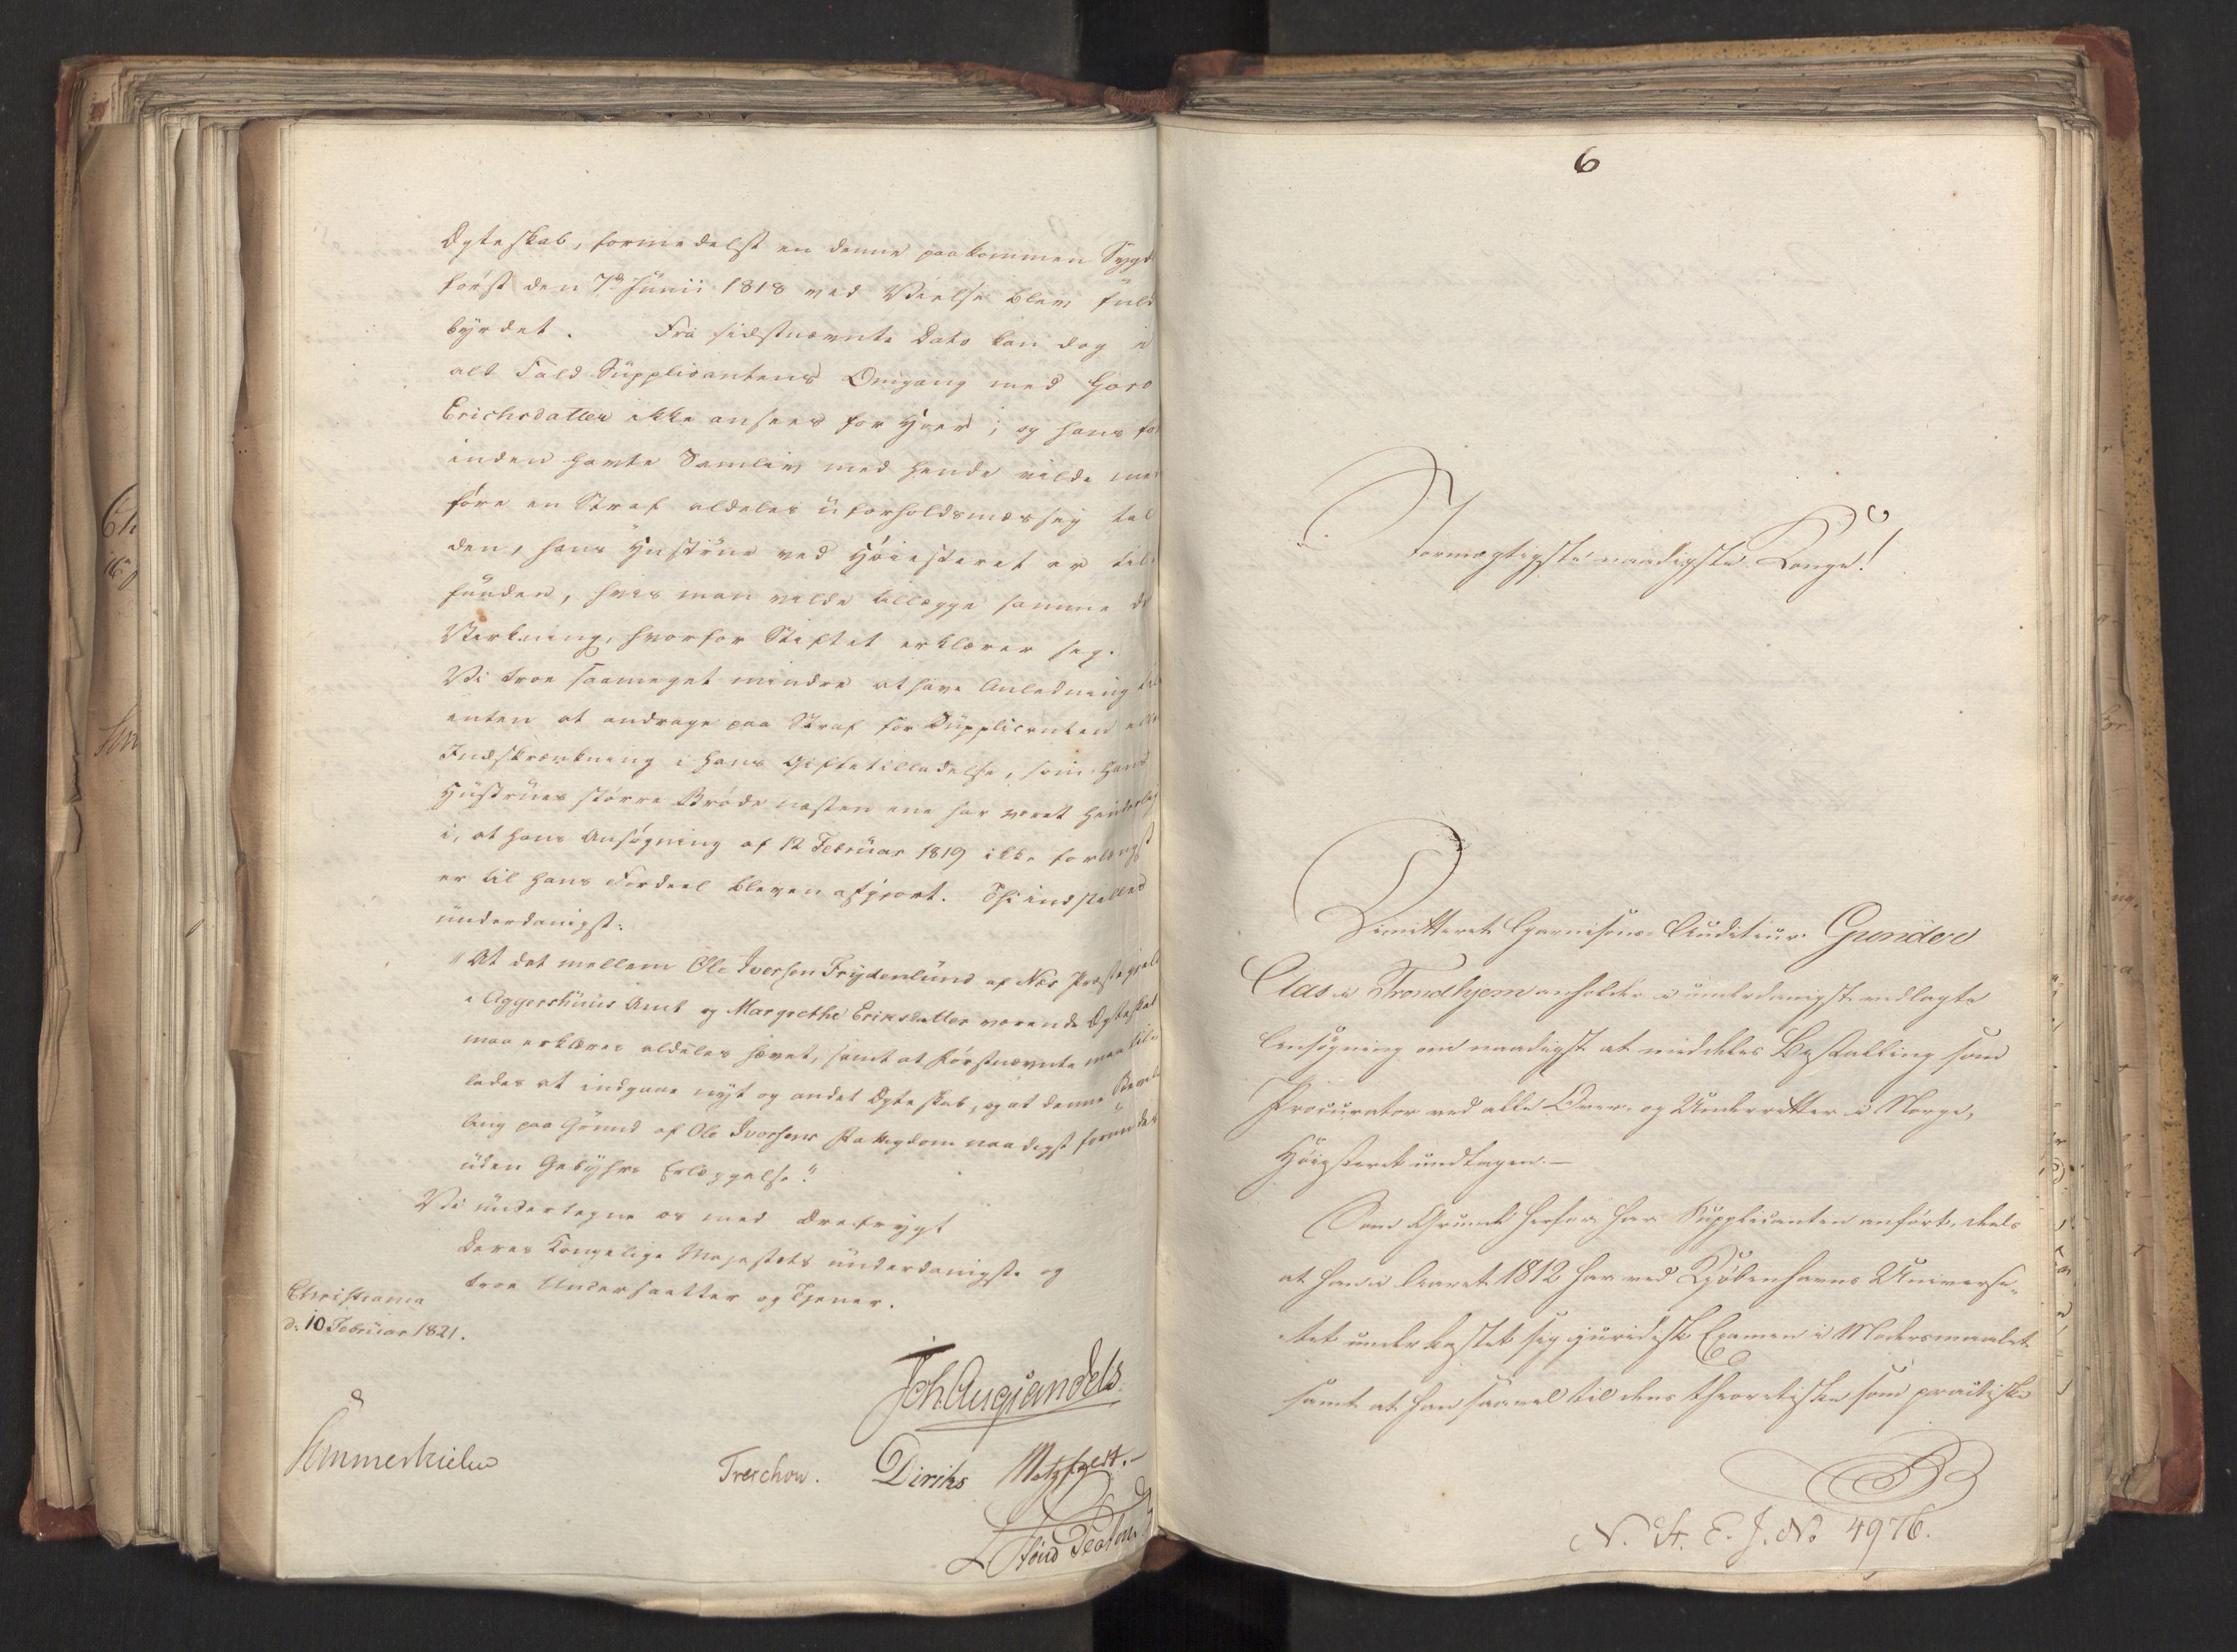 Ægteskab, formedelst en denne paakommen Sygd
først den 7de Junii 1818 ved Vielse blev fuld
byrdet. Fra sidstnævnte Dato kan dog i
alt Fald Supplicantens Omgang med Goro
Erichsdatter ikke ansees for Hoer; og hans for
inden havte Samliv med hende vilde med
føre en Straf aldeles uforholdsmæssig til
den, hans Hustrue ved Høiesteret er til-
funden, hvis man vilde tillægge samme de
Virkning, hvorfor Stiftet erklærer sig.
Vi troe saameget mindre at have Anledning til
enten at andrage paa Straf for Supplicanten eller
Indskrænkning i hans Giftetilladelse, som hans
Hustrues større Brøde næsten ene har været
i, at hans Ansøgning af 12 Februar 1819 ikke forlængst
er til hans Fordeel bleven afgjort. Thi indstilles
underdanigst:
"At det mellem Ole Iversen Frydenlund af Næs Præstegjeld
i Aggershuus Amt og Margrethe Eriksdatter værende Ægteskab
maa erklæres aldeles hævet, samt at førstnævnte maa til-
lades at indgaae nyt og andet Ægteskab, og at denne Bevil
ling paa Grund af Ole Iversens Fattigdom naadigst
uden Gebyhrs Erlæggelse."
Vi undertegne os med Ærefrygt
Deres Kongelige Majestæts underdanigste og
troe Undersaatter og Tjener.
Christiania
d: 10 Februar 1821.
Joh. Aug. Sandels
Sommerhielm Treschow. Diriks Motzfeldt.
6
Stormægtigste naadigste Konge!
Dimitteret Garnisons-Auditeur Gunder
Clas i Trondhjem anholder i underdanigst vedlagte
Ansøgning om naadigst at meddeles Bestalling som
Procurator ved alle Over- og Underretter i Norge,
Høiesteret undtagen.-
Som Grund herfor har Supplicanten anført, deels
at han i Aaret 1812 har ved Kjøbenhavns Universi-
tet underkastet sig juridisk Examen i Modersmaalet
samt at han saavel til dens theoretiske som practiske
N. St. E. J. No 4976.